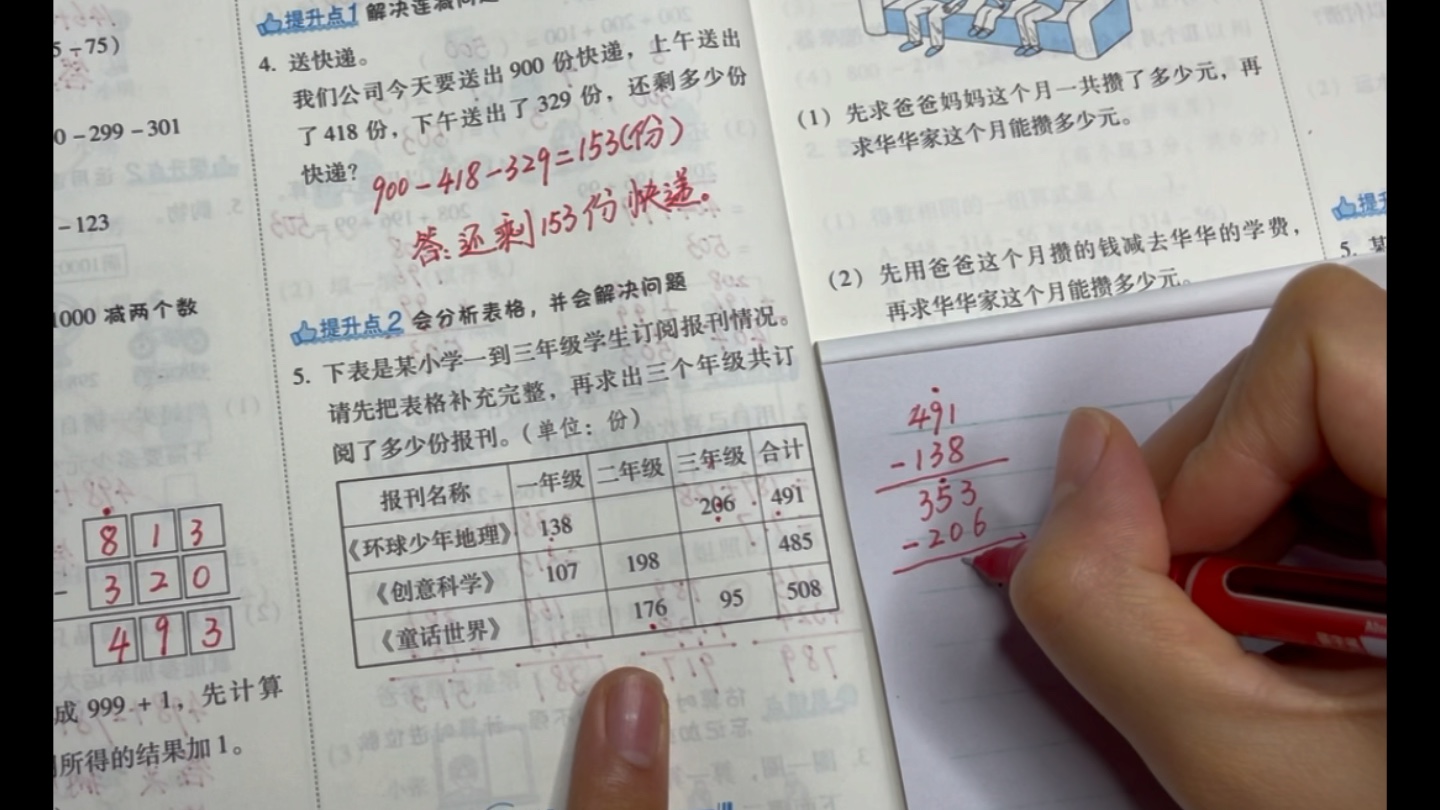 5÷75)
0-299-301
-123
1000 减两个数
8 1 3
- 3 2 0
4 9 3
成 999+1，先计算
所得的结果加1。
提升点1 解决连减问题
4. 送快递。
我们公司今天要送出 900 份快递，上午送出
了 418 份，下午送出了 329 份，还剩多少份
快递？
900-418-329=153(份)
答：还剩153份快递。
提升点2 会分析表格，并会解决问题
5. 下表是某小学一到三年级学生订阅报刊情况。
请先把表格补充完整，再求出三个年级共订
阅了多少份报刊。(单位：份)
报刊名称 一年级 二年级 三年级 合计
《环球少年地理》 138 206 491
《创意科学》 107 198 485
《童话世界》 176 95 508
(1) 先求爸爸妈妈这个月一共攒了多少元，再
求华华家这个月能攒多少元。
(2) 先用爸爸这个月攒的钱减去华华的学费，
再求华华家这个月能攒多少元。
提升
5. 某
491
-138
353
-206